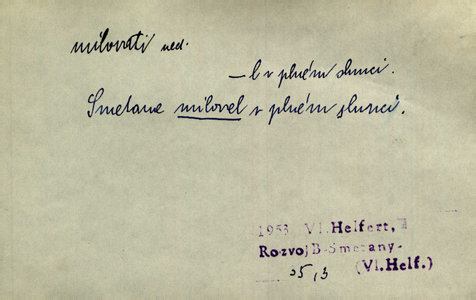 milovati ned.
– l v plném slunci.
Smetana miloval v plném slunci.
1953 Vl. Helfert,
Rozvoj B. Smetany.
25,3 (Vl. Helf.)